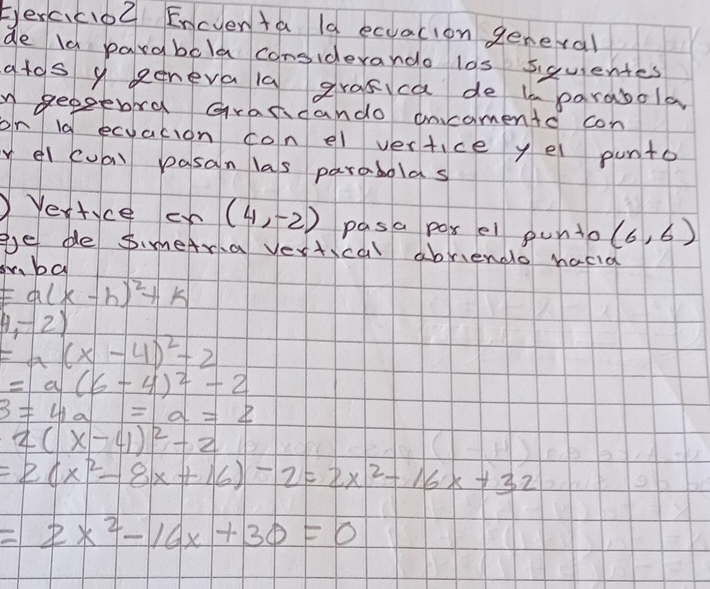 Ejercicio2 Encuenta la ecuacion general
de la parabola considerando los siguientes
atos y geneva la grafica de la parabola
n geogebra Graficando unicamente con
on la ecuacion con el vertice y el punto
r el cual pasan las parabolas
) Vertice en (4,-2) pasa por el punto (6,6)
eje de simetria vertical abriendo hacia
arriba
= a(x-h)²+k
4,-2)
= a (x-4)²-2
= a (6-4)² -2
8 = 4a = a = 2
2(x-4)²-2
= 2(x²-8x+16)-2 = 2x²-16x+32
= 2x²-16x+30 = 0